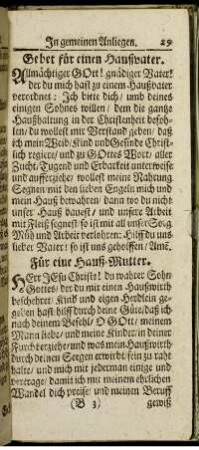 In gemeinen Anliegen. 29
Gebet für einen Haußvater.
Allmächtiger GOtt! gnädiger Vater!
der du mich hast zu einem Haußvater
verordnet: Ich bitte dich/ umb deines
einigen Sohnes willen/ dem die gantze
Haußhaltung in der Christenheit befoh-
len/ du wollest mir Verstand geben/ daß
ich mein Weib/ Kind und Gesinde Christ-
lich regiere/ und zu GOttes Wort/ aller
Zucht/ Tugend und Erbarkeit unterweise
und aufferziehe: wollest meine Nahrung
Segnen mit den lieben Engeln mich und
mein Hauß bewahren/ dann wo du nicht
unser Hauß bauest/ und unsere Arbeit
mit Fleiß segnest so ist mit all unser Sorg
Müh und Arbeit verlohren: Hilff du uns
lieber Vater: so ist uns geholffen/ Amē.
Für eine Hauß-Mutter.
HErr JEsu Christe! du wahrer Sohn
Gottes/ der du mit einen Haußwirth
beschehret/ Kind und eigen Herdlein ge-
geben hast hilff durch deine Güte/ daß ich
nach deinem Befehl/ O GOtt/ meinem
Mann liebe/ und meine Kinder in deiner
Furcht erziehe/ und was mein Haußwirth
durch deinen Seegen erwirbt fein zu rath
halte/ und mich mit jederman einige und
vertrage/ damit ich mit meinem ehrlichen
Wandel dich preise/ und meinen Beruff
(B 3) gewiß